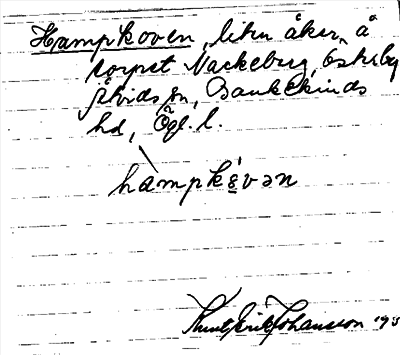 Hampkoven, liten åker å
torpet Nackeberg, Österby
Åtvids sn, Bankekinds
hd, Ögl. l.
hampkɷ́vən
Knut Erik Johansson 193